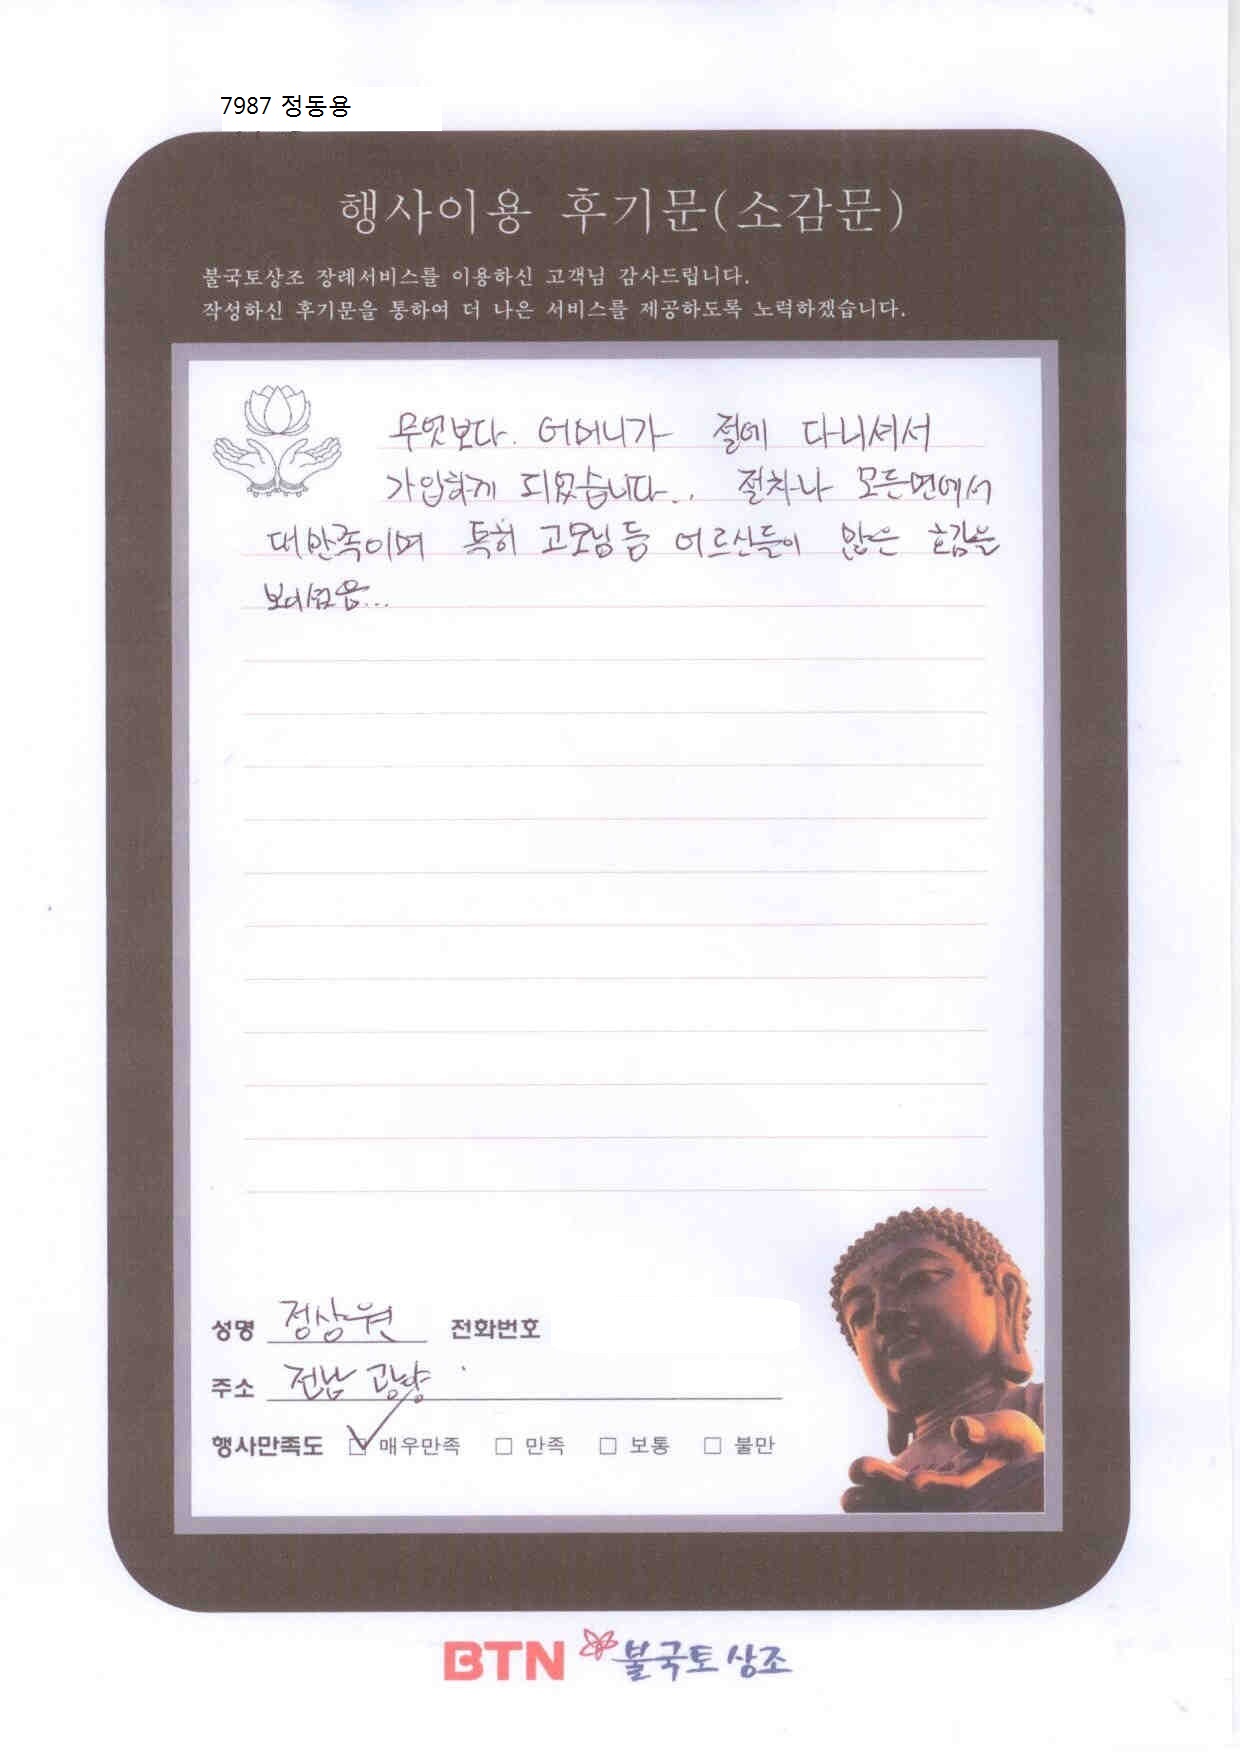 7987 정동용
행사이용 후기문(소감문)
불국토상조 장례서비스를 이용하신 고객님 감사드립니다.
작성하신 후기문을 통하여 더 나은 서비스를 제공하도록 노력하겠습니다.
무엇보다. 어머니가 절에 다니셔서
가입하게 되었습니다.. 절차나 모든면에서
대만족이며 특히 고모님 등 어르신들이 많은 호감을
보이셨음...
성명 정상원 전화번호
주소 전남 광양
행사만족도 ☑ 매우만족 □ 만족 □ 보통 □ 불만
BTN 불국토 상조